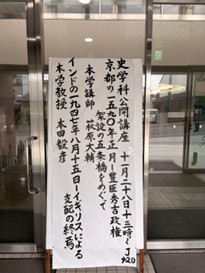 史学科公開講座 十一月二十八日十三時〜 J 520
京都の一五九〇年正月ー豊臣秀吉政権
架設の五条橋をめぐって
本学講師 萩原大輔
インドの一九四七年八月十五日ーイギリスによる
支配の終焉
本学教授 本田毅彦